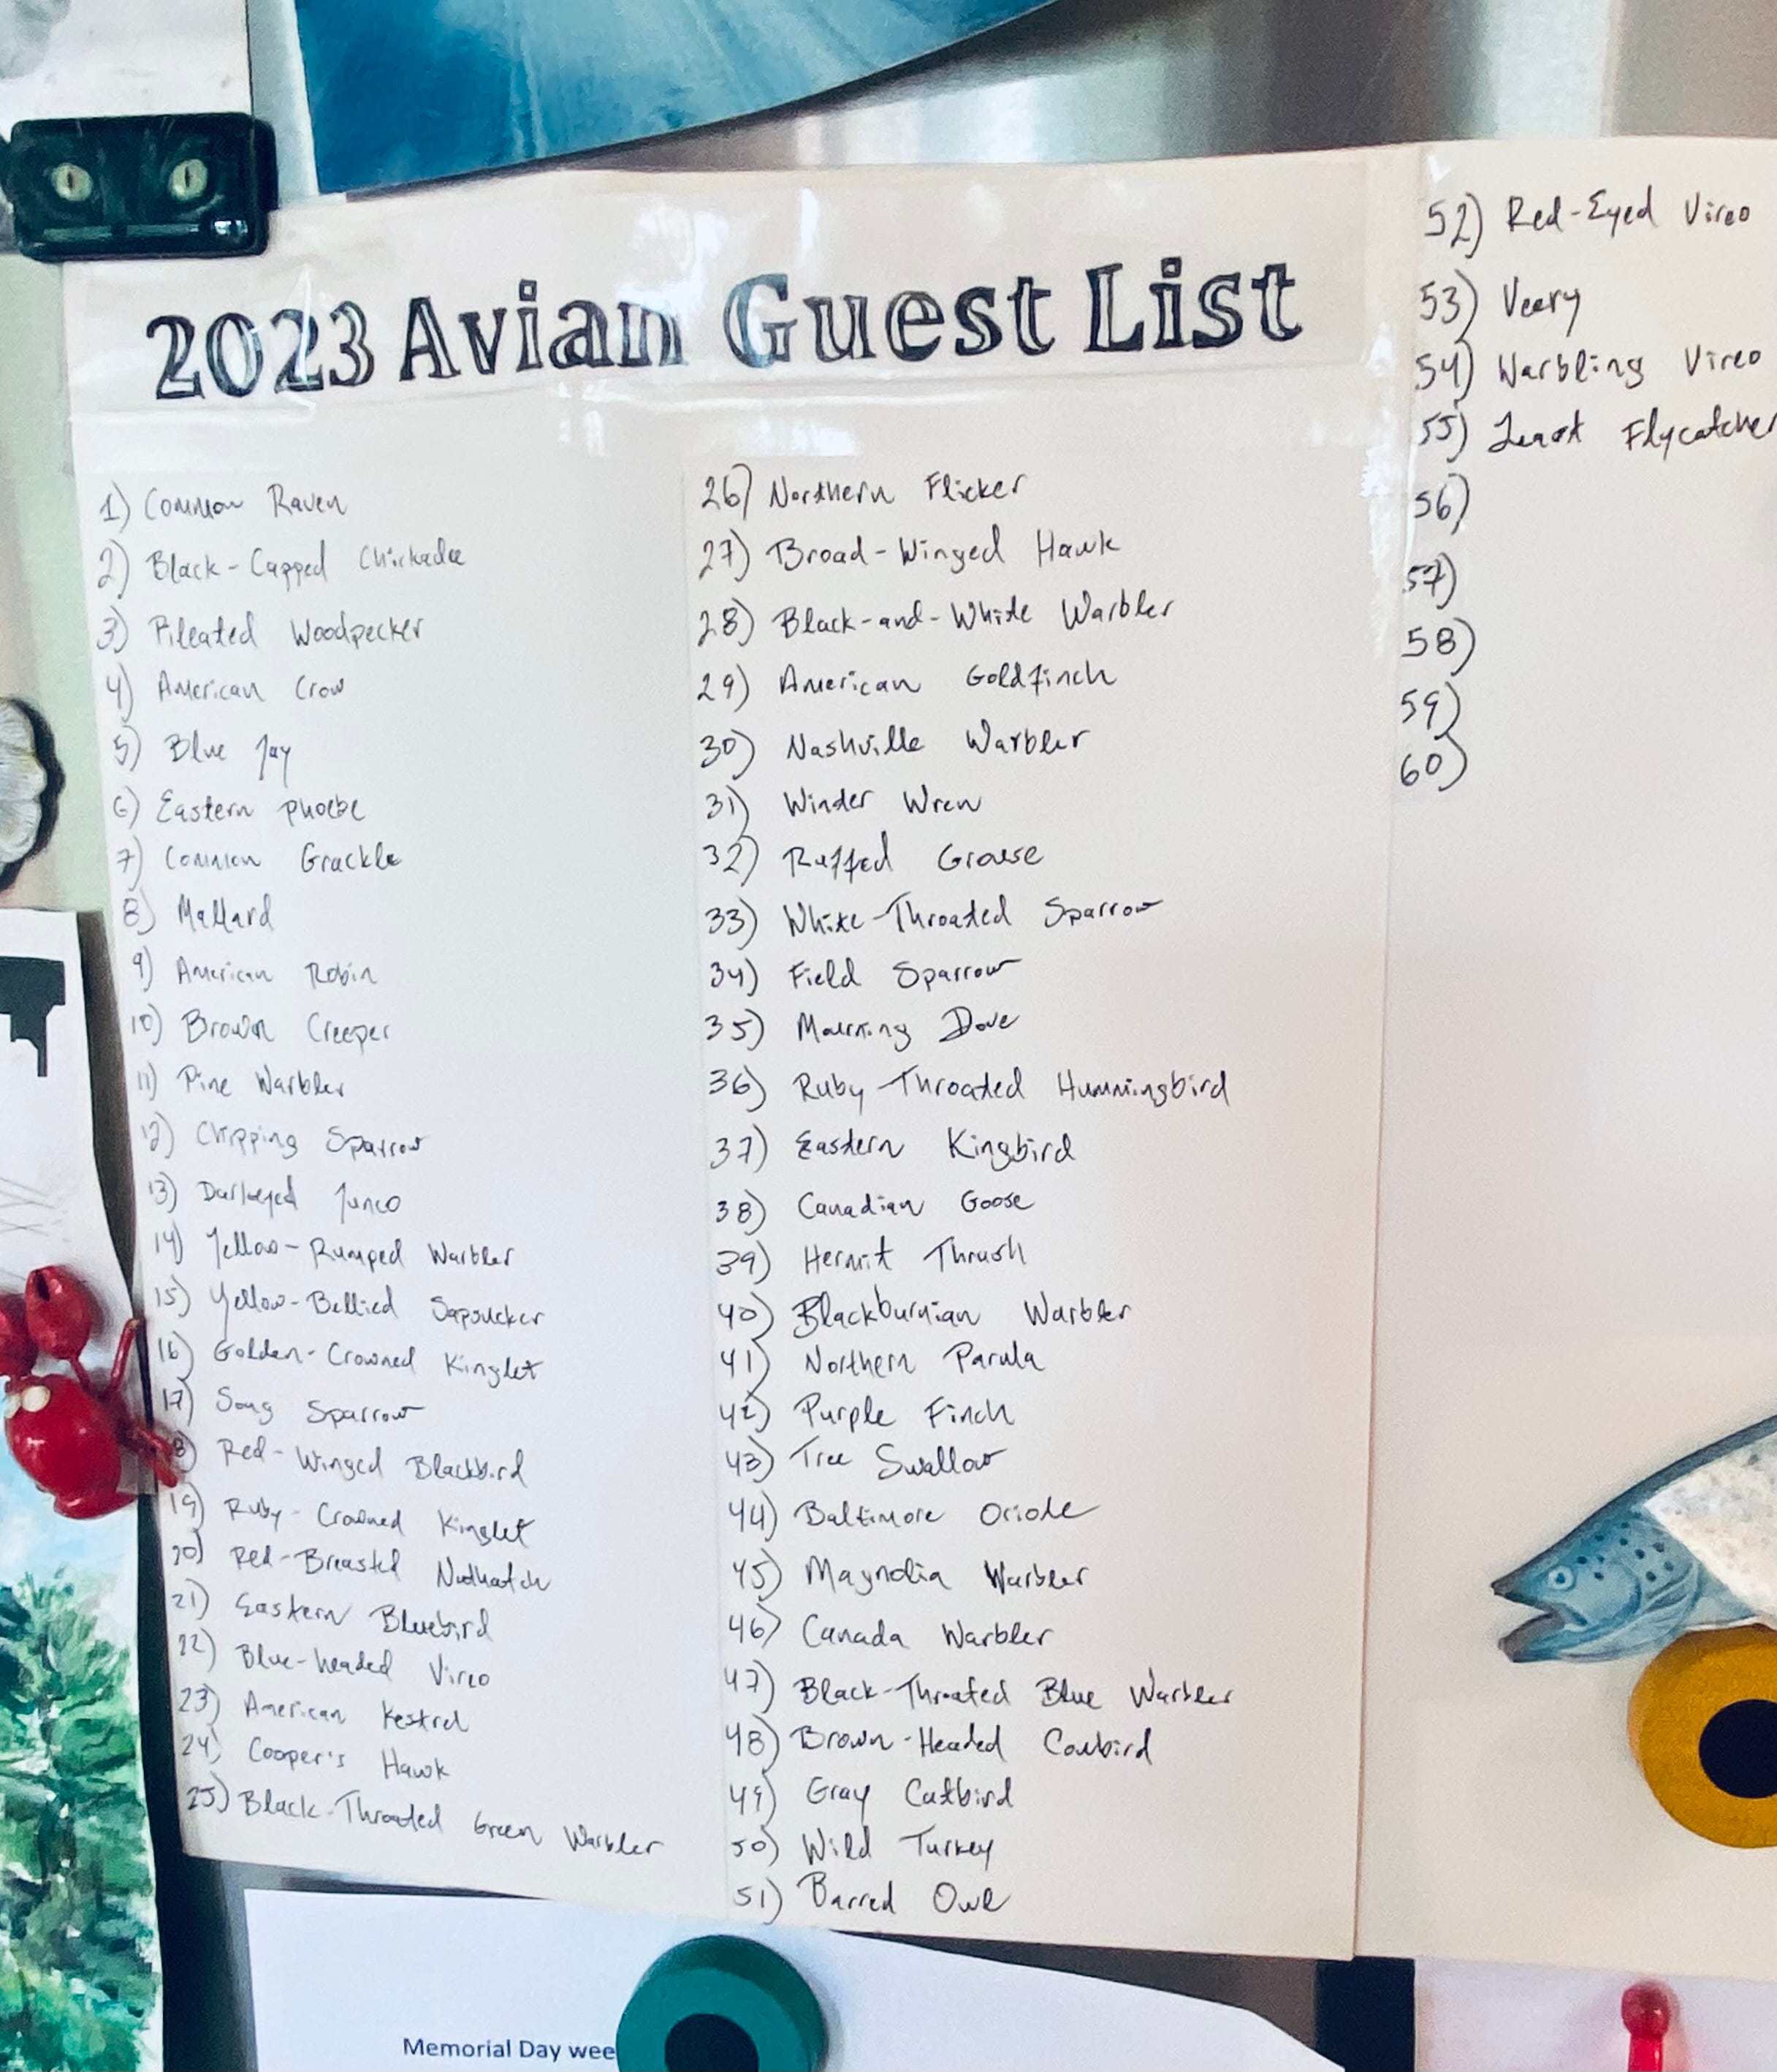 2023 Avian Guest List
1) Common Raven
2) Black-Capped Chickadee
3) Pileated Woodpecker
4) American Crow
5) Blue Jay
6) Eastern Phoebe
7) Common Grackle
8) Mallard
9) American Robin
10) Brown Creeper
11) Pine Warbler
12) Chipping Sparrow
13) Darkeyed Junco
14) Yellow-Rumped Warbler
15) Yellow-Bellied Sapsucker
16) Golden-Crowned Kinglet
17) Song Sparrow
8) Red-Winged Blackbird
19) Ruby-Crowned Kinglet
20) Red-Breasted Nuthatch
21) Eastern Bluebird
22) Blue-headed Vireo
23) American Kestrel
24) Cooper's Hawk
25) Black-Throated Green Warbler
26) Northern Flicker
27) Broad-Winged Hawk
28) Black-and-White Warbler
29) American Goldfinch
30) Nashville Warbler
31) Winter Wren
32) Ruffed Grouse
33) White-Throated Sparrow
34) Field Sparrow
35) Mourning Dove
36) Ruby-Throated Hummingbird
37) Eastern Kingbird
38) Canadian Goose
39) Hermit Thrush
40) Blackburnian Warbler
41) Northern Parula
42) Purple Finch
43) Tree Swallow
44) Baltimore Oriole
45) Magnolia Warbler
46) Canada Warbler
47) Black-Throated Blue Warbler
48) Brown-Headed Cowbird
49) Gray Catbird
50) Wild Turkey
51) Barred Owl
52) Red-Eyed Vireo
53) Veery
54) Warbling Vireo
55) Least Flycatcher
56)
57)
58)
59)
60)
Memorial Day wee